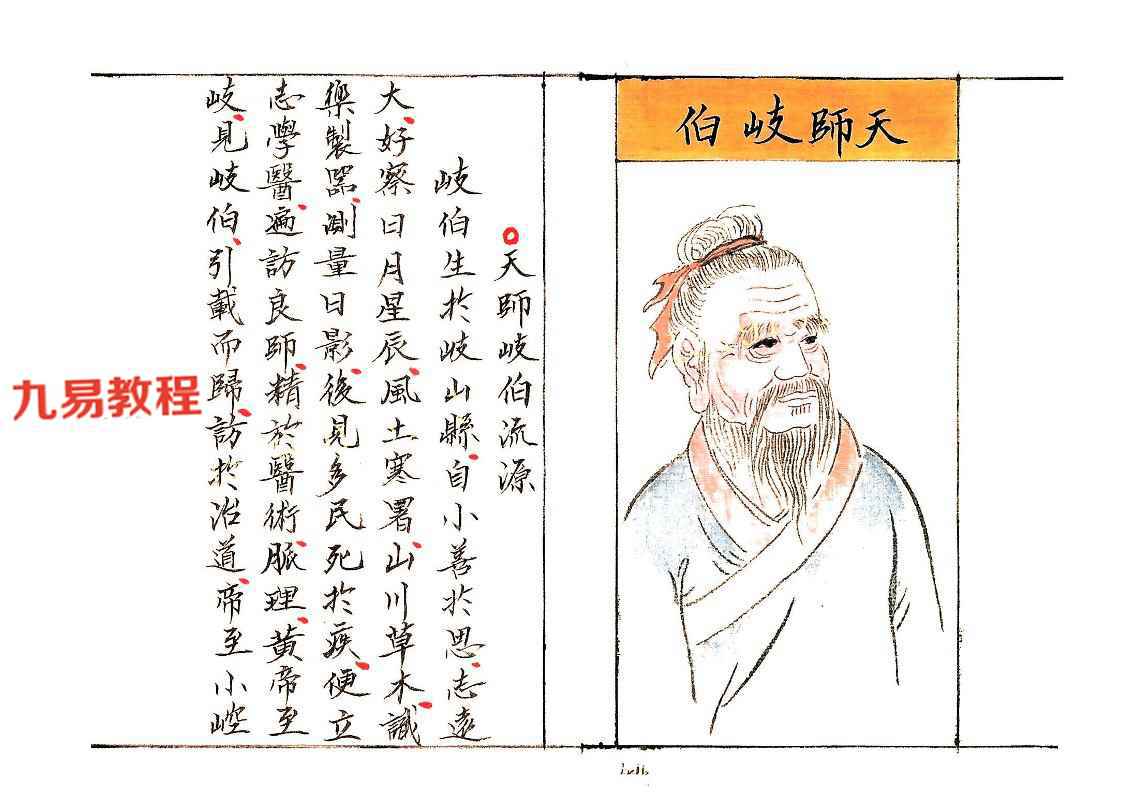 天師岐伯
天師岐伯流源
岐伯生於岐山縣、自小善於思、志遠
大、好察日月星辰、風土寒署、山川草木、識
樂製器、測量日影、後見多民死於疾、便立
志學醫、遍訪良師、精於醫術、脈理、黃帝至
岐、見岐伯、引載而歸、訪於治道、帝至小崆
九易教程